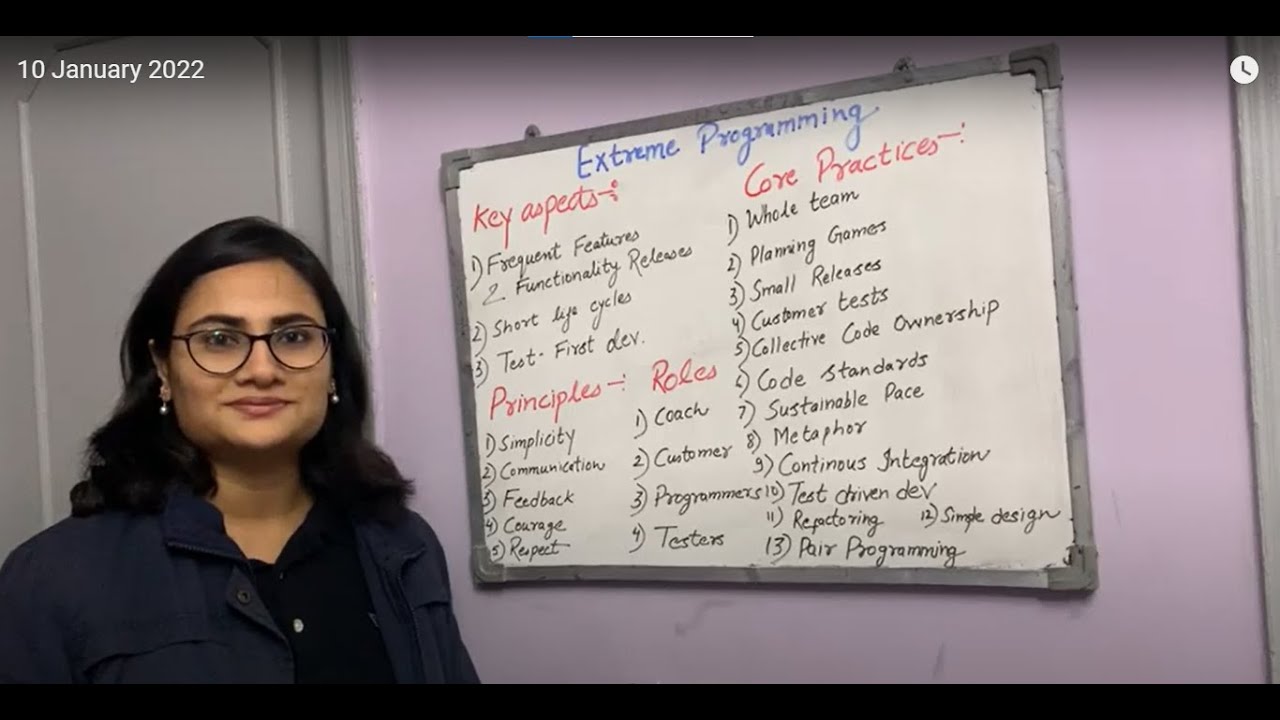 10 January 2022
Extreme Programming
Key aspects:
1) Frequent Features
& Functionality Releases
2) Short life cycles
3) Test-First dev.
Principles:
1) Simplicity
2) Communication
3) Feedback
4) Courage
5) Respect
Roles
1) Coach
2) Customer
3) Programmers
4) Testers
Core Practices:
1) Whole team
2) Planning Games
3) Small Releases
4) Customer tests
5) Collective Code Ownership
6) Code standards
7) Sustainable Pace
8) Metaphor
9) Continous Integration
10) Test driven dev
11) Refactoring 12) Simple design
13) Pair Programming